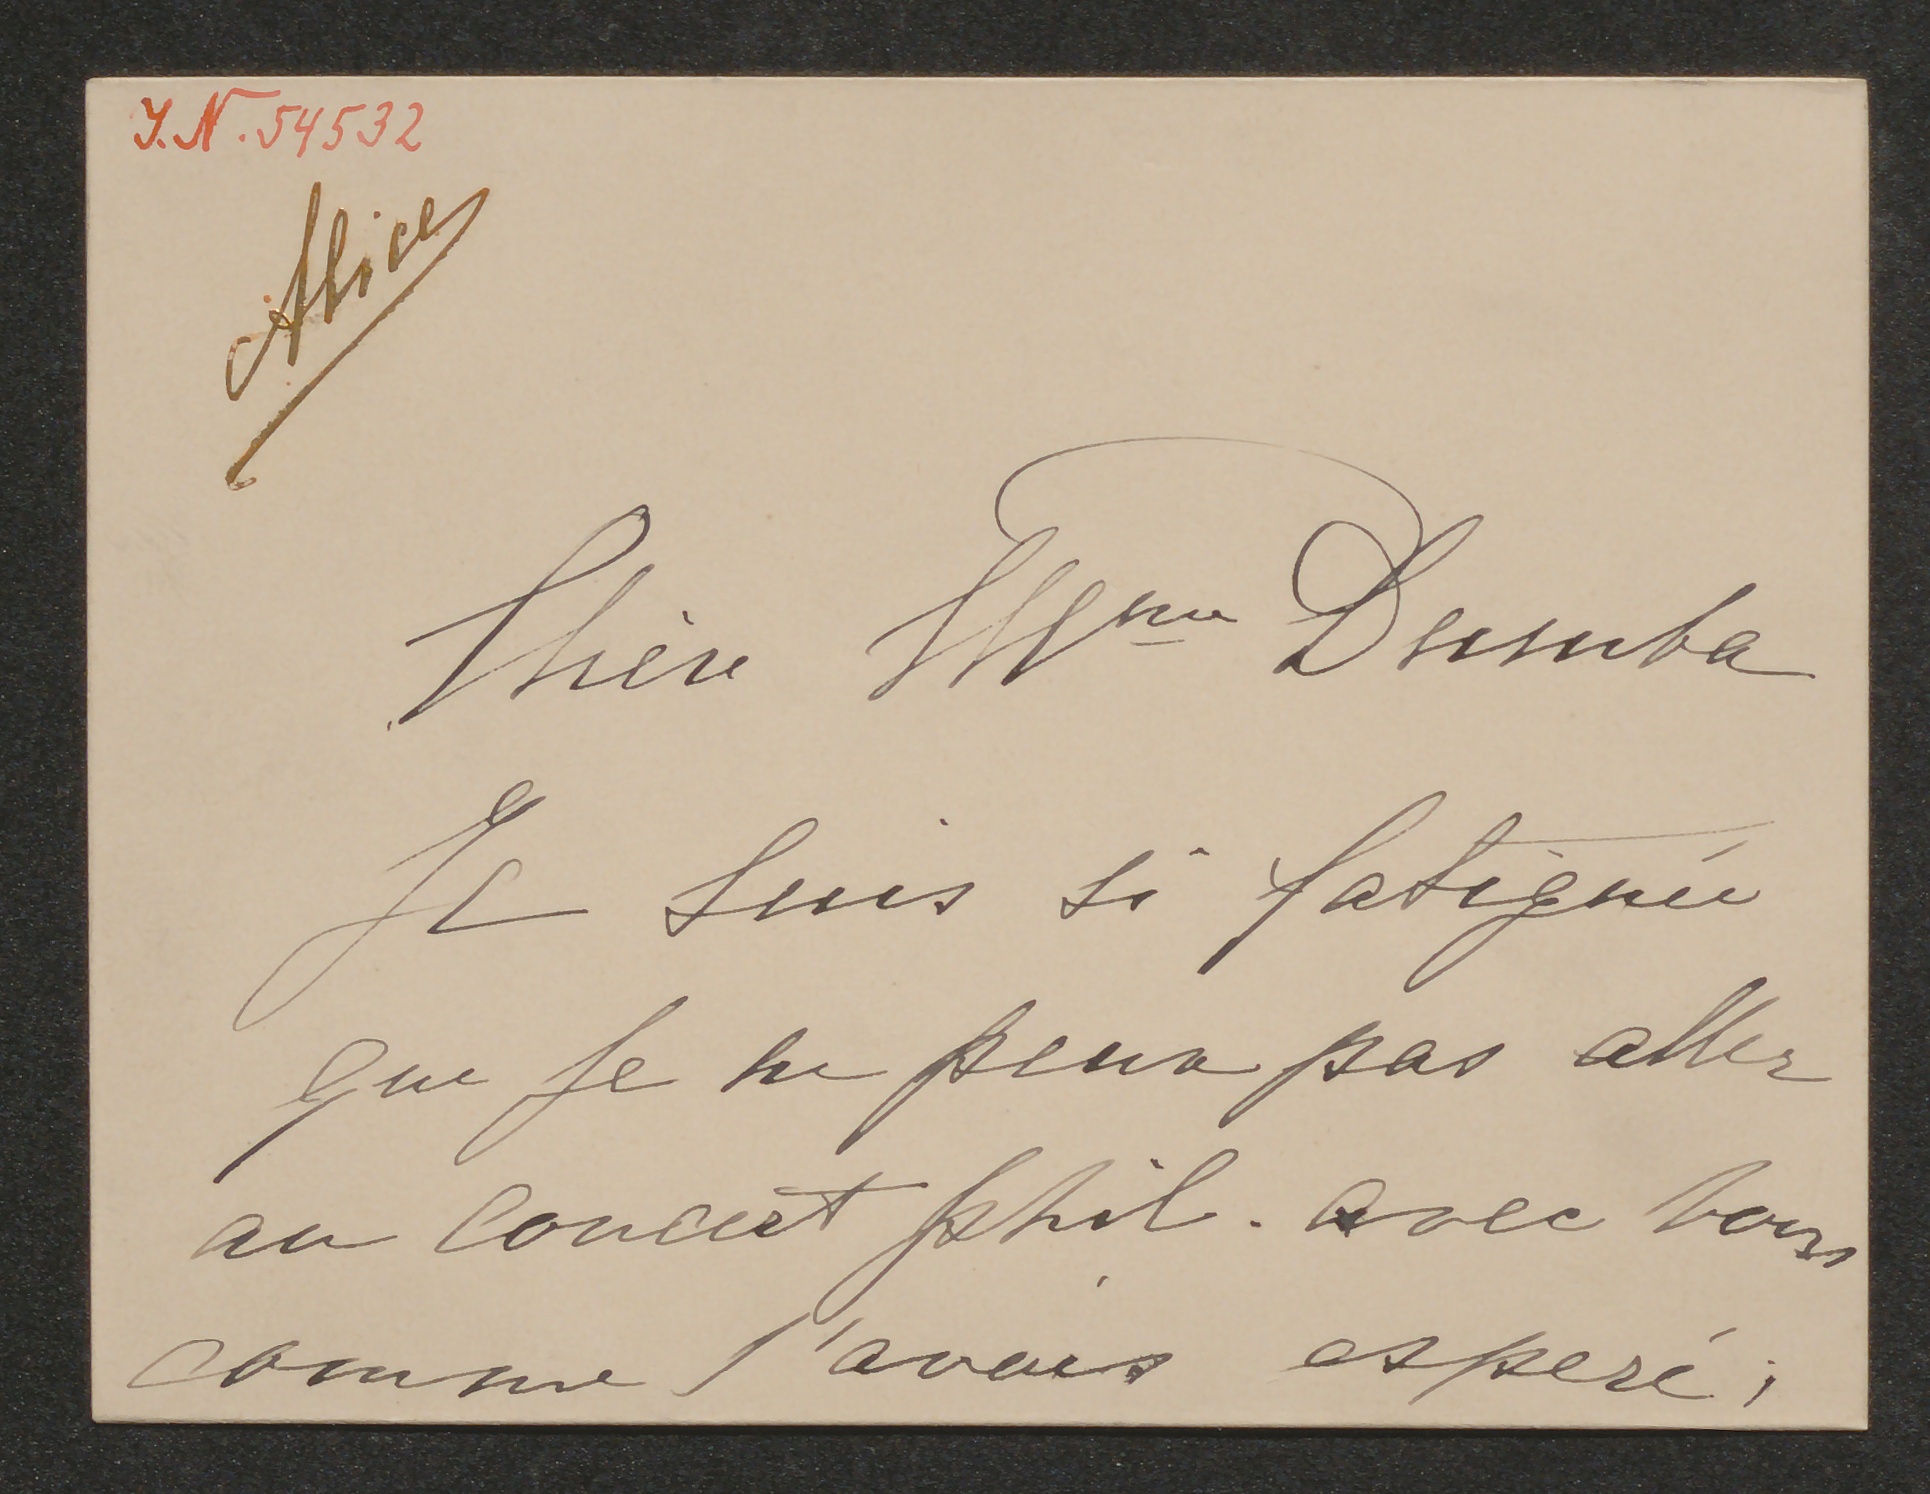 I.N. 54532
Alice
Chère Mme Dumba
Je suis si fatiguée
que je ne peux pas aller
au concert phil. avec vous
comme j'avais esperé;